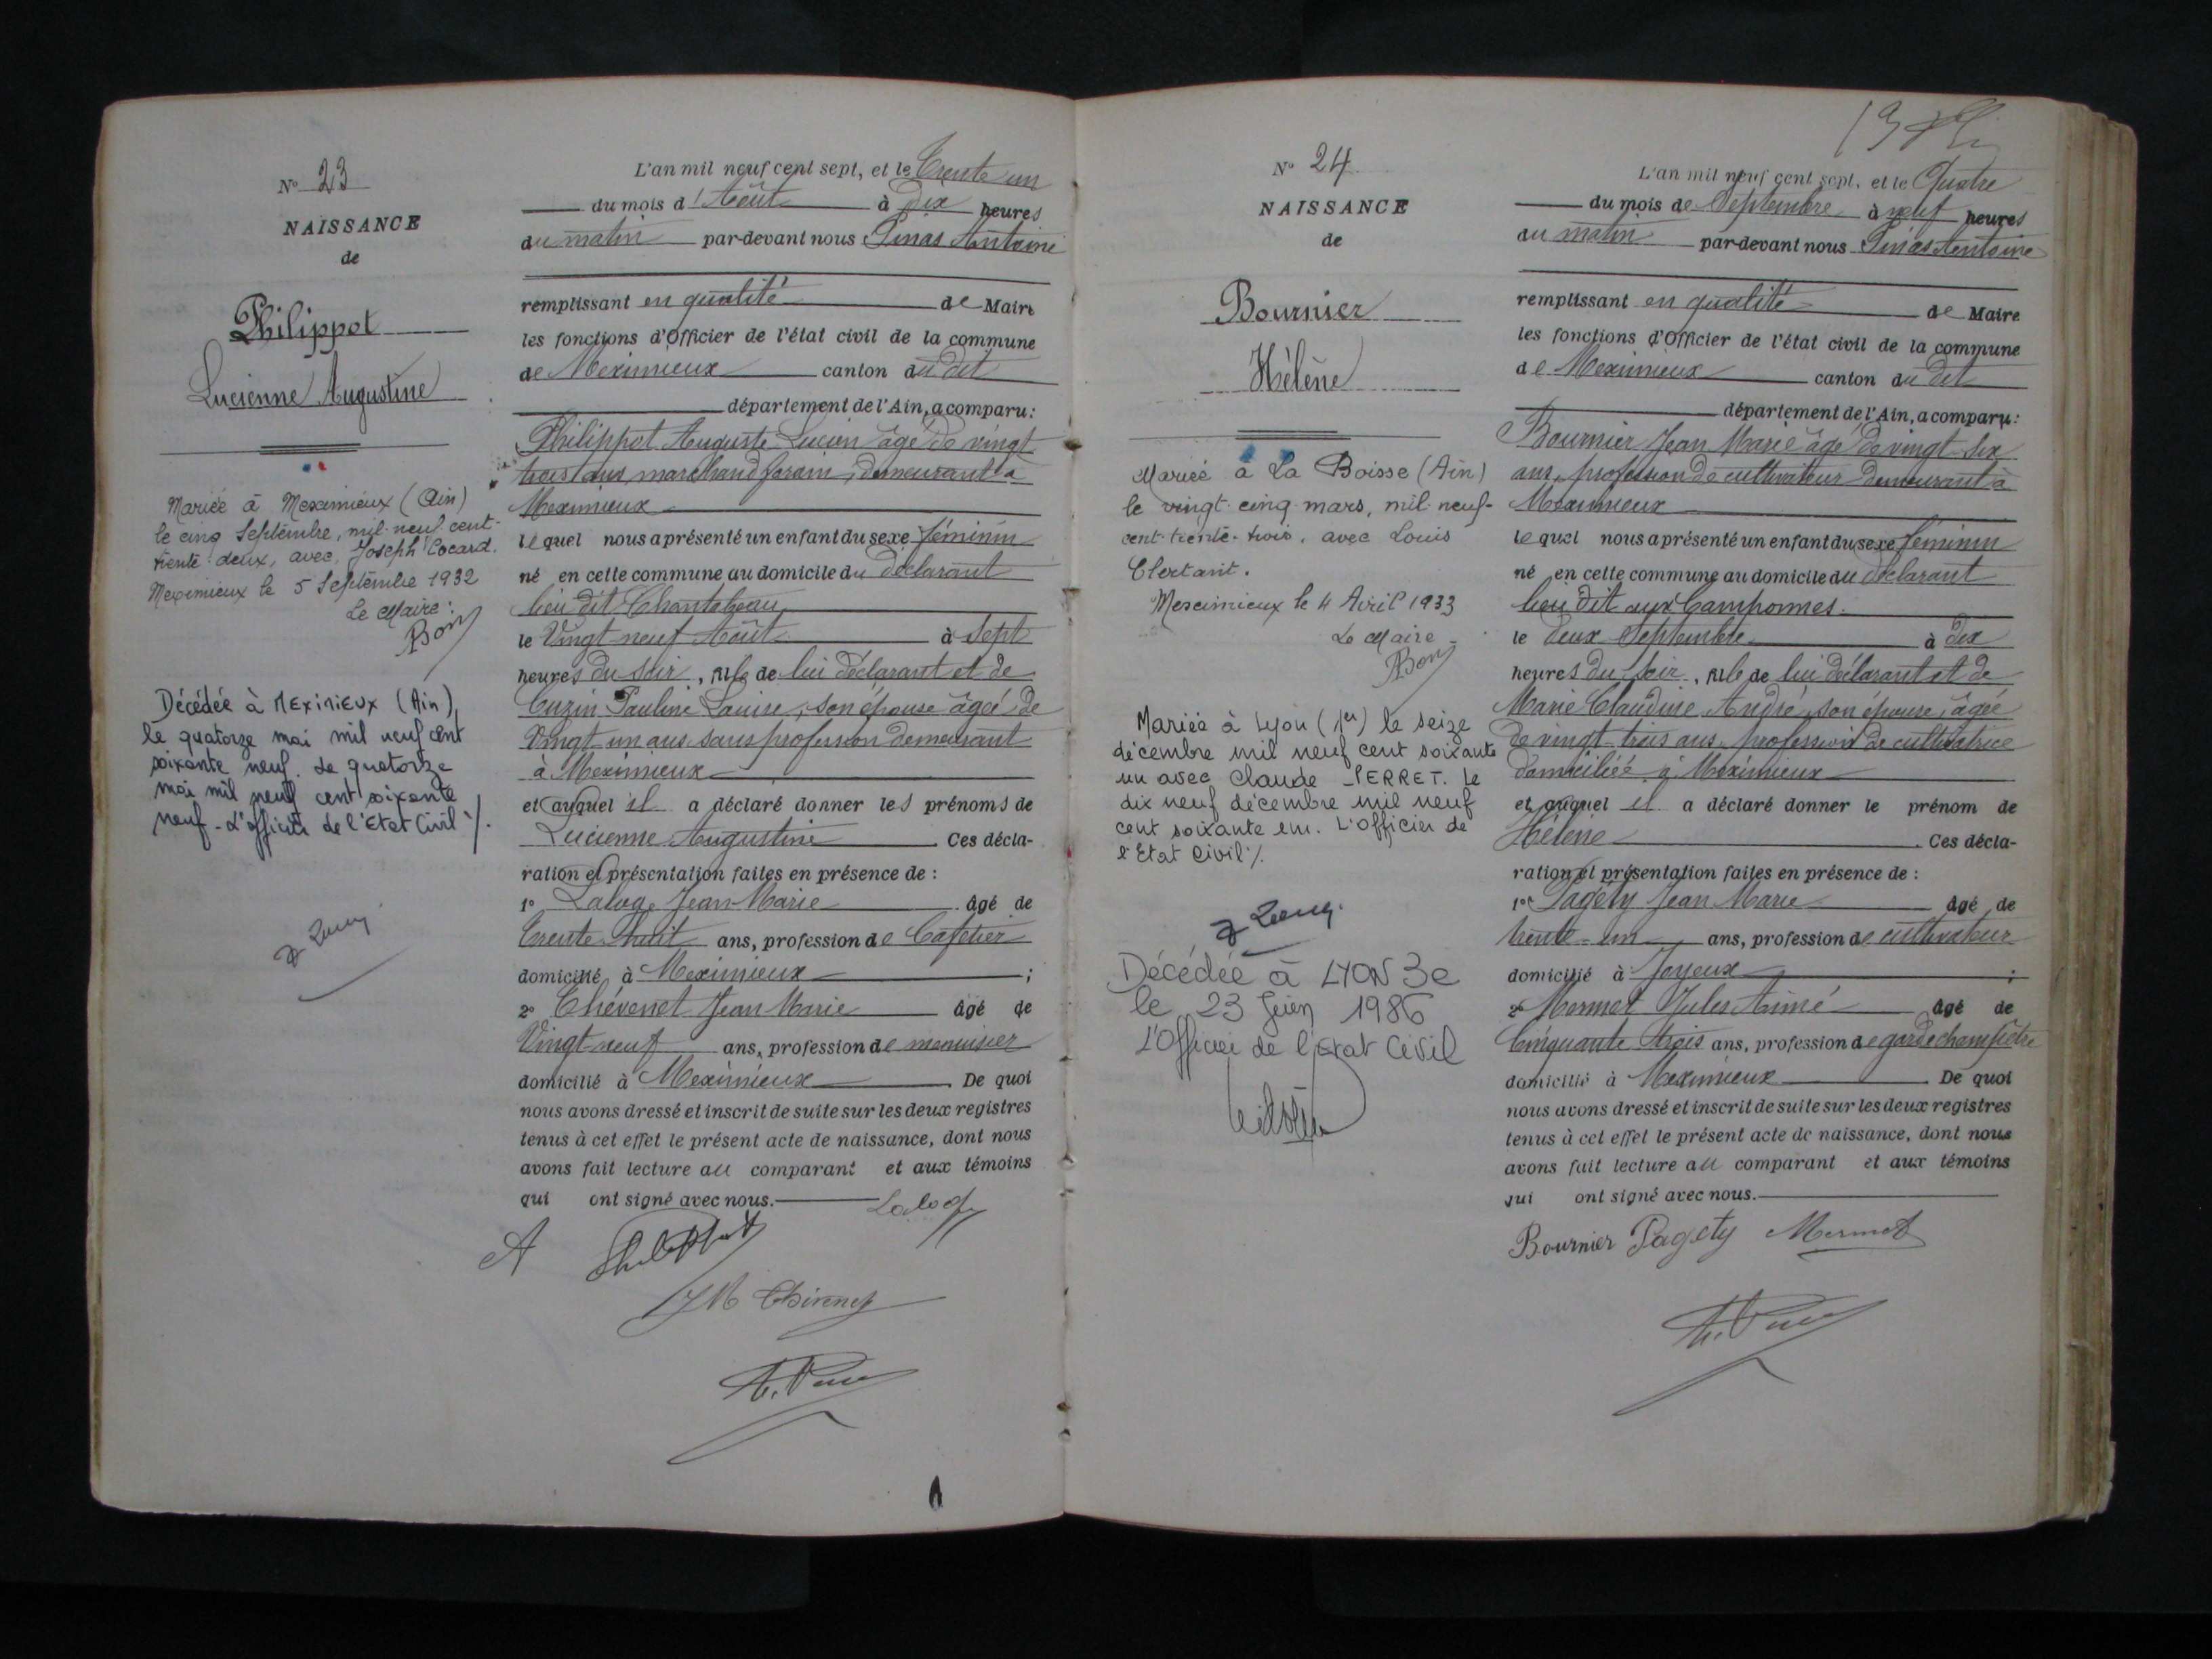 N° 23
NAISSANCE
de
Philippot
Lucienne Augustine
Mariée à Meximieux (Ain)
le cinq Septembre, mil-neuf cent-
trente-deux, avec Joseph Cocard.
Meximieux le 5 Septembre 1932
Le Maire:
Bon
Décédée à MEXIMIEUX (Ain)
le quatorze mai mil neuf cent
soixante neuf. Le quatorze
mai mil neuf cent soixante
neuf - L'officier de l'Etat Civil ./.
L'an mil neuf cent sept, et le Trente un
du mois d'Août à Dix heures
du matin par-devant nous Pinas Antoine
remplissant en qualité de Maire
les fonctions d'Officier de l'état civil de la commune
de Meximieux canton du dit
département de l'Ain, a comparu:
Philippot Auguste Lucien âgé de vingt
trois ans, marchand forain, demeurant à
Meximieux
lequel nous a présenté un enfant du sexe féminin
né en cette commune au domicile du déclarant
lieu dit Chantabeau
le Vingt neuf Août à Sept
heures du soir, fille de lui déclarant et de
Cuzin Pauline Louise, son épouse âgée de
Vingt un ans sans profession demeurant
à Meximieux
et auquel il a déclaré donner les prénoms de
Lucienne Augustine Ces décla-
ration et présentation faites en présence de :
1° Laloge Jean Marie âgé de
Trente huit ans, profession de Cafetier
domicilié à Meximieux ;
2° Chévenet Jean Marie âgé de
Vingt-neuf ans, profession de menuisier
domicilié à Meximieux De quoi
nous avons dressé et inscrit de suite sur les deux registres
tenus à cet effet le présent acte de naissance, dont nous
avons fait lecture au comparant et aux témoins
qui ont signé avec nous. Laloge
A Philippot
JM
N° 24
NAISSANCE
de
Bournier
Hélène
Mariée à La Boisse (Ain)
le vingt-cinq mars, mil-neuf-
cent-trente-trois, avec Louis
Clertant.
Meximieux le 4 Avril 1933
Le Maire
Bon
Mariée à Lyon (1er) le seize
décembre mil neuf cent soixante
un avec Claude PERRET. Le
dix neuf décembre mil neuf
cent soixante un. L'Officier de
l'Etat Civil ./.
Décédée à LYON 3e
le 23 Juin 1986
L'Officier de l'Etat Civil
L'an mil neuf cent sept, et le Quatre
du mois de Septembre à neuf heures
du matin par-devant nous Pinas Antoine
remplissant en qualité de Maire
les fonctions d'Officier de l'état civil de la commune
de Meximieux canton du dit
département de l'Ain, a comparu:
Bournier Jean Marie âgé de vingt-six
ans, profession de cultivateur demeurant à
Meximieux
lequel nous a présenté un enfant du sexe féminin
né en cette commune au domicile du déclarant
lieu dit aux
le deux Septembre à dix
heures du soir, fille de lui déclarant et de
Marie Claudine André, son épouse, âgée
de vingt-trois ans, profession de cultivatrice
domiciliée à Meximieux
et auquel il a déclaré donner le prénom de
Hélène Ces décla-
ration et présentation faites en présence de :
1° Pagéty Jean Marie âgé de
trente-un ans, profession de cultivateur
domicilié à Joyeux ;
2° Mermet Jules Aimé âgé de
Cinquante trois ans, profession de garde champêtre
domicilié à Meximieux De quoi
nous avons dressé et inscrit de suite sur les deux registres
tenus à cet effet le présent acte de naissance, dont nous
avons fait lecture au comparant et aux témoins
qui ont signé avec nous.
Bournier Pagety Mermet